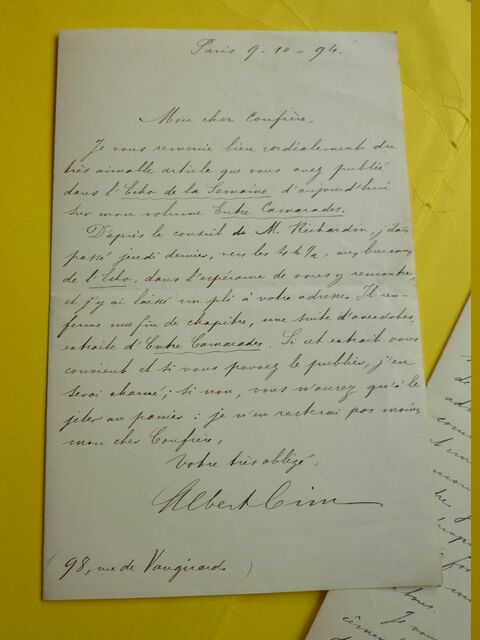 Paris 9-10-94.
Mon cher Confrère,
Je vous remercie bien cordialement du
très aimable article que vous avez publié
dans l'Echo de la Semaine d'aujourd'hui
sur mon volume Entre Camarades.
D'après le conseil de M. Richardin, j'étais
passé jeudi dernier, vers les 4 h 1/2, aux bureaux
de l'Echo, dans l'espérance de vous y rencontrer,
et j'y ai laissé un pli à votre adresse. Il ren-
ferme une fin de chapitre, une suite d'anecdotes,
extraite d'Entre Camarades. Si cet extrait vous
convient et si vous pouvez le publier, j'en
serai charmé ; si non, vous n'aurez qu'à le
jeter au panier : je n'en resterai pas moins,
mon cher Confrère,
Votre très obligé,
Albert Cim
98, rue de Vaugirard
de
tous.
Je